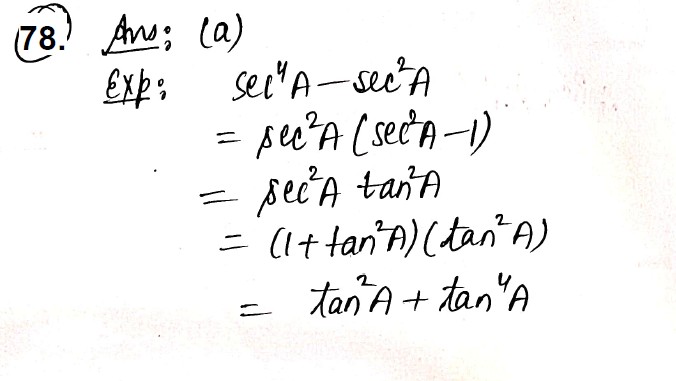 78. Ans: (a)
Exp: sec⁴A − sec²A
= sec²A (sec²A − 1)
= sec²A tan²A
= (1 + tan²A) (tan²A)
= tan²A + tan⁴A